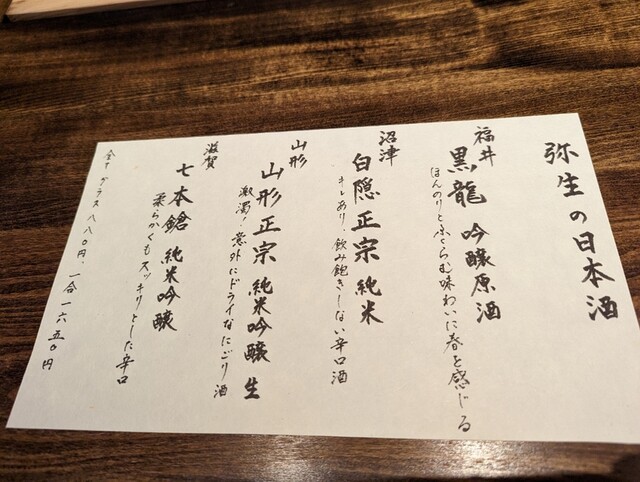 弥生の日本酒
福井
黒龍 吟醸原酒
ほんのりとふくらむ味わいに春を感じる
沼津
白隠正宗 純米
キレあり、飲み飽きしない辛口酒
山形
山形正宗 純米吟醸 生
激濁!意外にドライなにごり酒
滋賀
七本鎗 純米吟醸
柔らかくもスッキリとした辛口
全て グラス八八〇円、一合一六五〇円